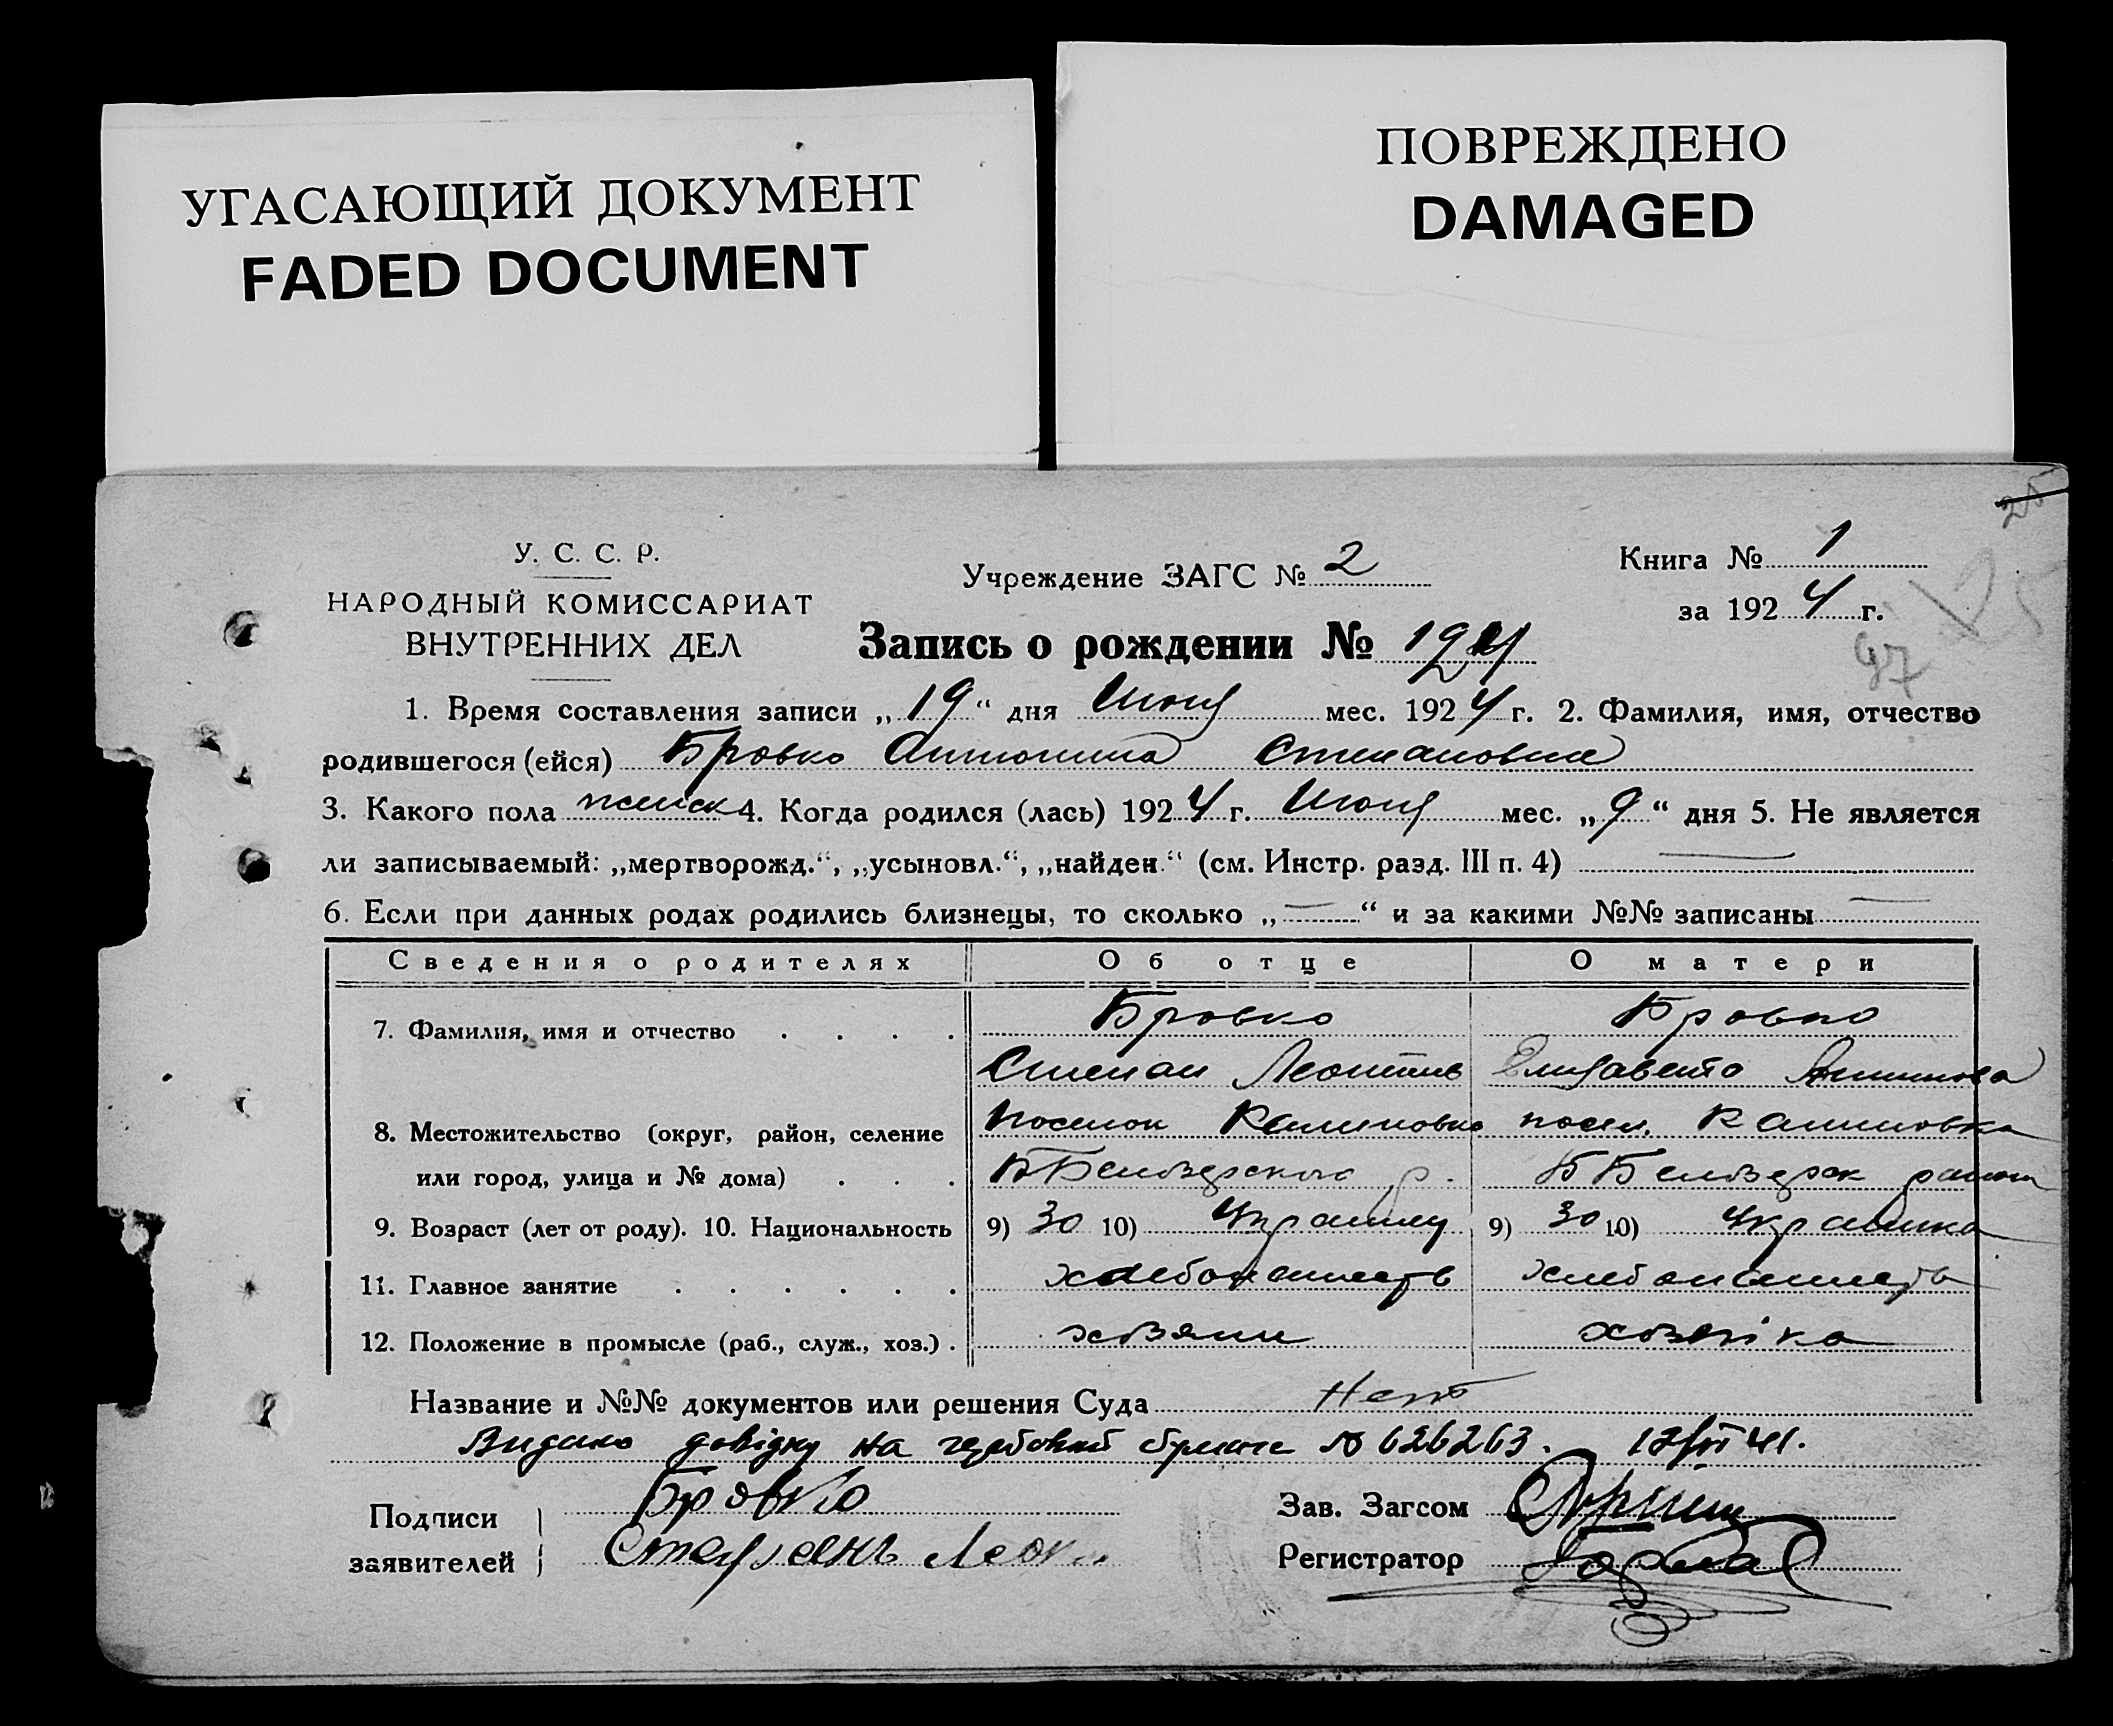 УГАСАЮЩИЙ ДОКУМЕНТ
FADED DOCUMENT
ПОВРЕЖДЕНО
DAMAGED
25
У. С. С. Р.
НАРОДНЫЙ КОМИССАРИАТ
ВНУТРЕННИХ ДЕЛ
Учреждение ЗАГС № 2
Книга № 1
за 1924 г.
97
Запись о рождении №
1. Время составления записи „ 19 “ дня Июня мес. 1924 г. 2. Фамилия, имя, отчество
родившегося (ейся) Бровко Антонина Степановна
3. Какого пола женск 4. Когда родился (лась) 1924 г. Июня мес. „ 9 “ дня 5. Не является
ли записываемый: „мертворожд.“, „усыновл.“, „найден.“ (см. Инстр. разд. III п. 4) —
6. Если при данных родах родились близнецы, то сколько „ — “ и за какими №№ записаны —
Сведения о родителях Об отце О матери
7. Фамилия, имя и отчество . . . . Бровко Бровко
Степан Леонтив Елизавета
8. Местожительство (округ, район, селение поселок Калиновка посел. Калиновка
или город, улица и № дома) . . . ББелозерского р. ББелозерск района
9. Возраст (лет от роду). 10. Национальность 9) 30 10) Украинец 9) 30 10) Украинка
11. Главное занятие . . . . . . хлебопашест хлебопашеств
12. Положение в промысле (раб., служ., хоз.) . хозяин хозяйка
Название и №№ документов или решения Суда Нет
Видано довідку на гербовий бланк № 626263. 41.
Подписи
заявителей
Бровко
Степань Леон
Зав. Загсом
Регистратор